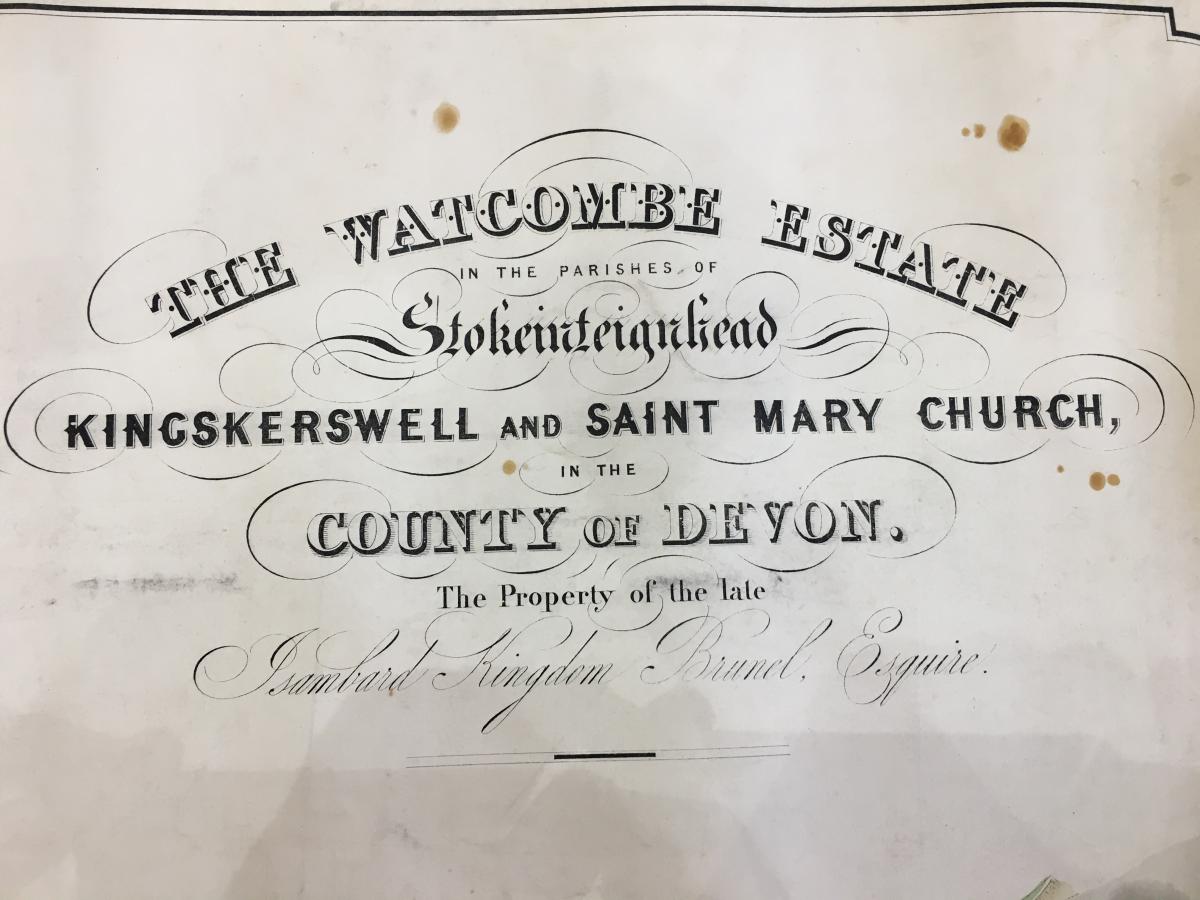 THE WATCOMBE ESTATE
IN THE PARISHES OF
Stokeinteignhead
KINGSKERSWELL AND SAINT MARY CHURCH,
IN THE
COUNTY OF DEVON.
The Property of the late
Isambard Kingdom Brunel, Esquire.